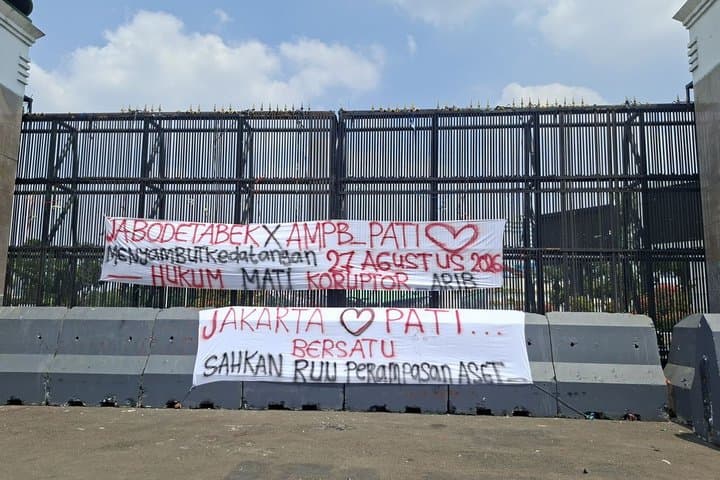 JABODETABEK X AMPB_PATI
MENYAMBUT KEdatangan 27 AGUSTUS 2026
HUKUM MATI KORUPTOR
JAKARTA PATI...
BERSATU
SAHKAN RUU PERAMPASAN ASET